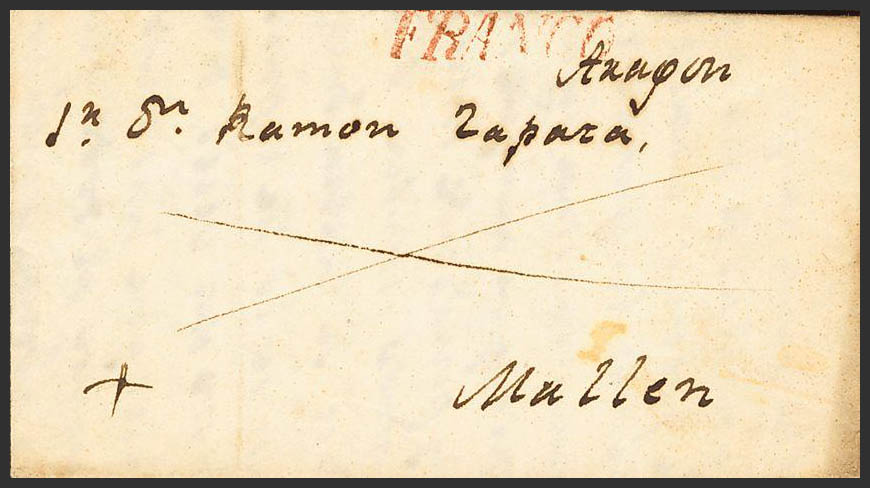 FRANCO
Aragon
Sr. Dn. Ramon Zapata,
Mallen